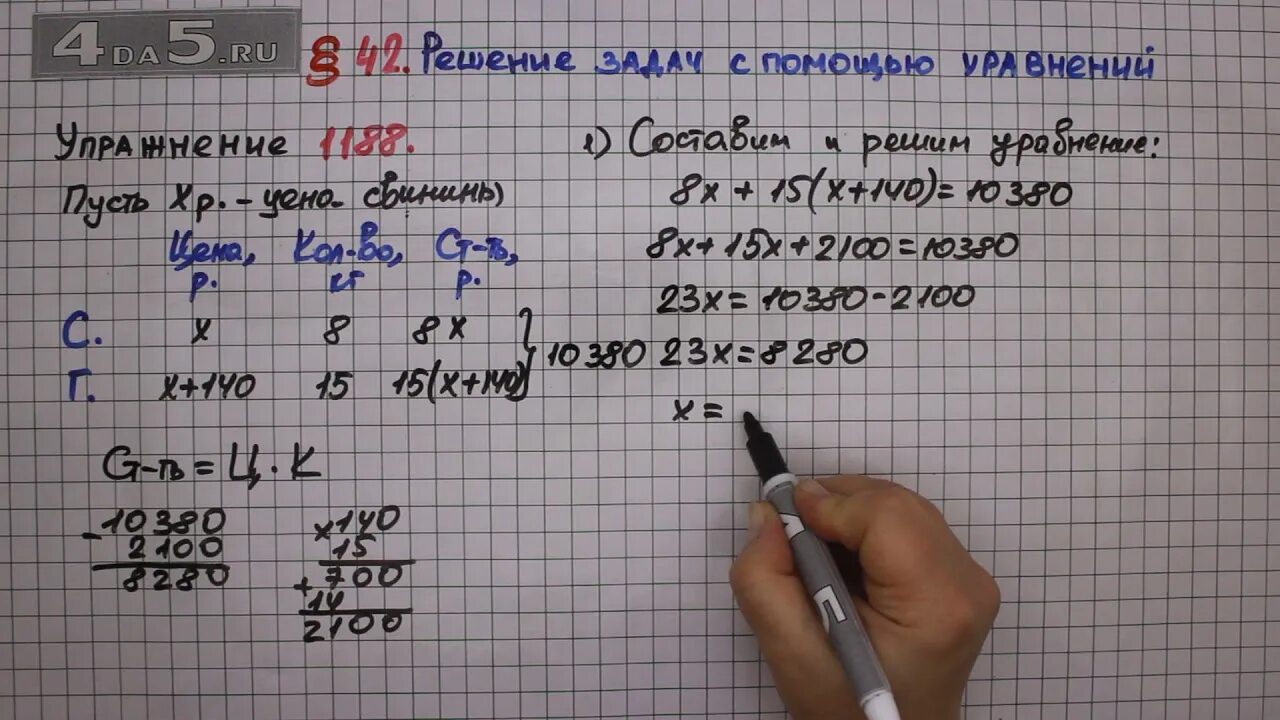 4DA5.RU
§ 42. Решение задач с помощью уравнений
Упражнение 1188.
Пусть х р. – цена свинины
Цена, Кол-во, Ст-ть,
р. кг р.
С. x 8 8x
Г. x+140 15 15(x+140) } 10380
Ст-ть = Ц · К
- 10380
2100
8280
× 140
15
+ 700
14
2100
1) Составим и решим уравнение:
8x + 15(x+140) = 10380
8x + 15x + 2100 = 10380
23x = 10380 - 2100
23x = 8280
x =